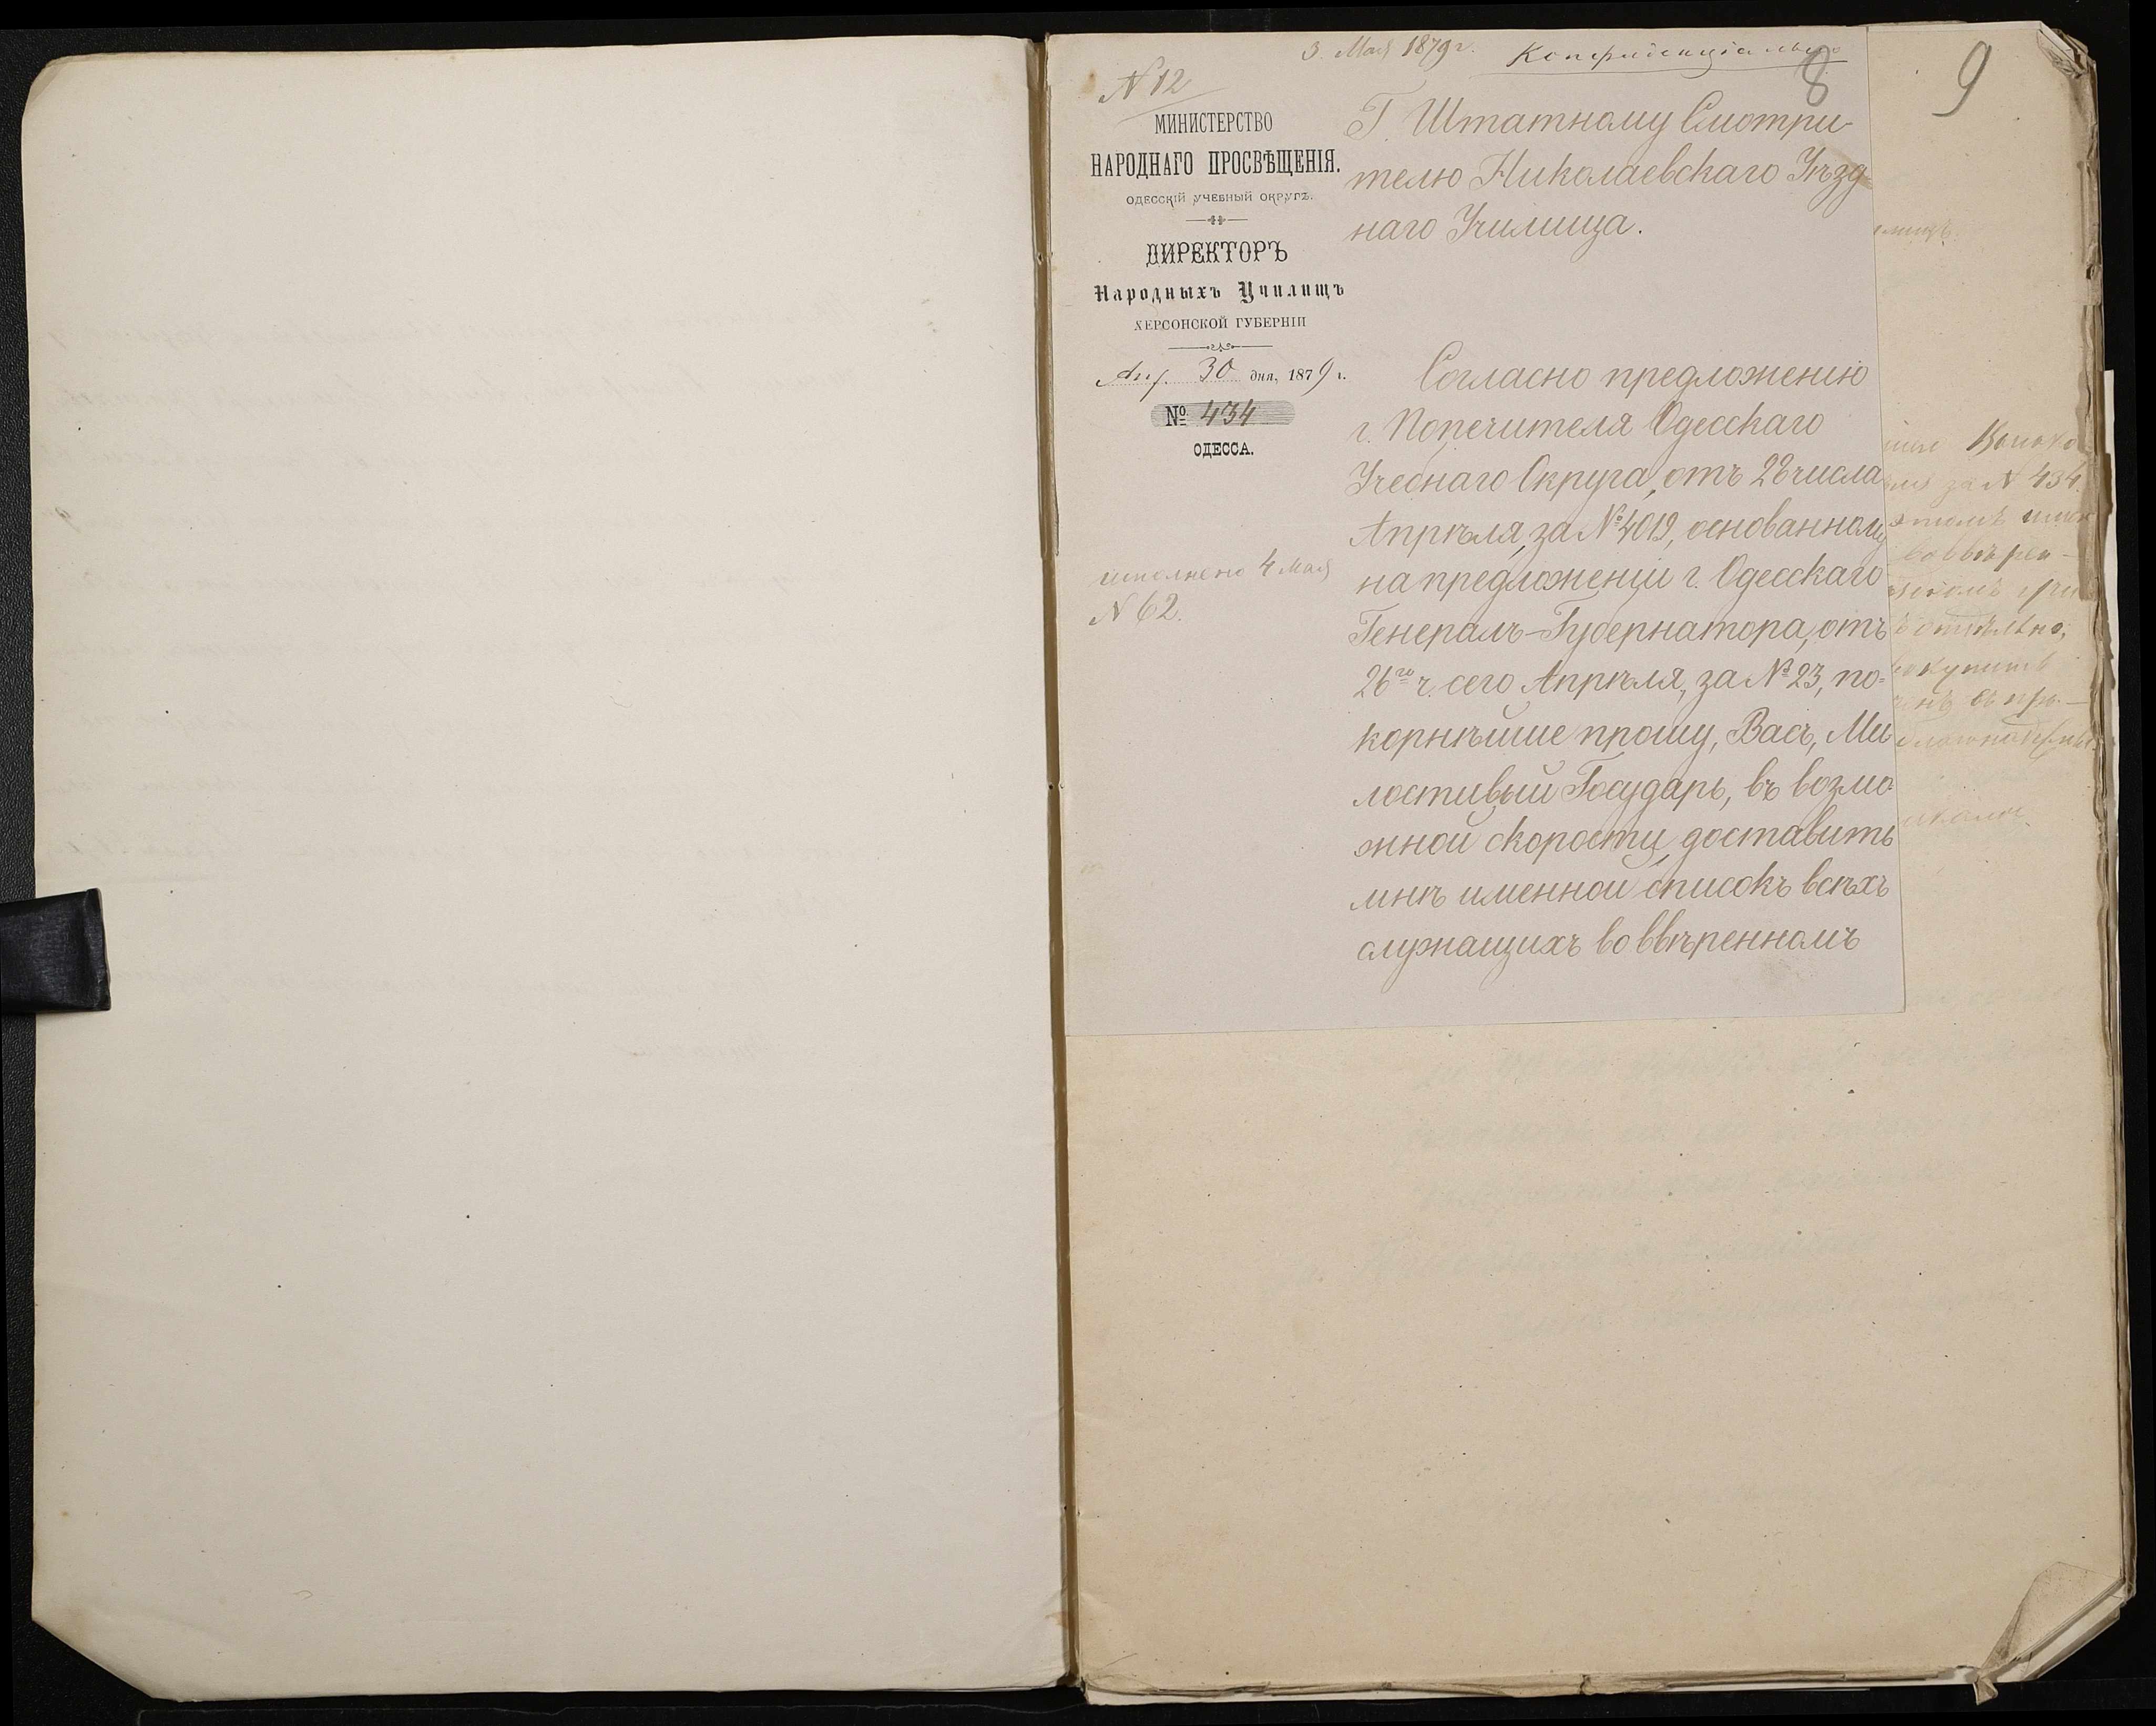 3 Мая 1879 г.
Конфиденціально
8
9
N 12
МИНИСТЕРСТВО
НАРОДНАГО ПРОСВѢЩЕНІЯ.
ОДЕССКІЙ УЧЕБНЫЙ ОКРУГЪ.
ДИРЕКТОРЪ
Народныхъ Училищъ
ХЕРСОНСКОЙ ГУБЕРНІИ
Апр. 30 дня, 1879 г.
№ 434
ОДЕССА.
исполнено 4 мая
N 62.
Г. Штатному Смотри-
телю Николаевскаго Уѣзд-
наго Училища.
Согласно предложенію
г. Попечителя Одесскаго
Учебнаго Округа, отъ 28 числа
Апрѣля, за № 4019, основанному
на предложеніи г. Одесскаго
Генералъ-Губернатора, отъ
26го ч. сего Апрѣля, за № 23, по-
корнѣйше прошу, Васъ, Ми
лостивый Государь, въ возмо
жной скорости, доставить
мнѣ именной списокъ всѣхъ
служащихъ во ввѣренномъ
за N 434.
во ввѣрен-